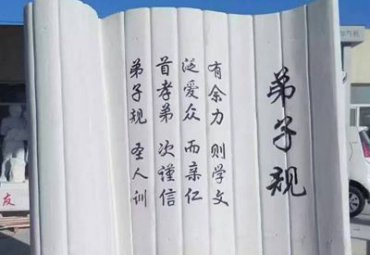 弟子规
弟子规 圣人训
首孝弟 次谨信
泛爱众 而亲仁
有余力 则学文
友